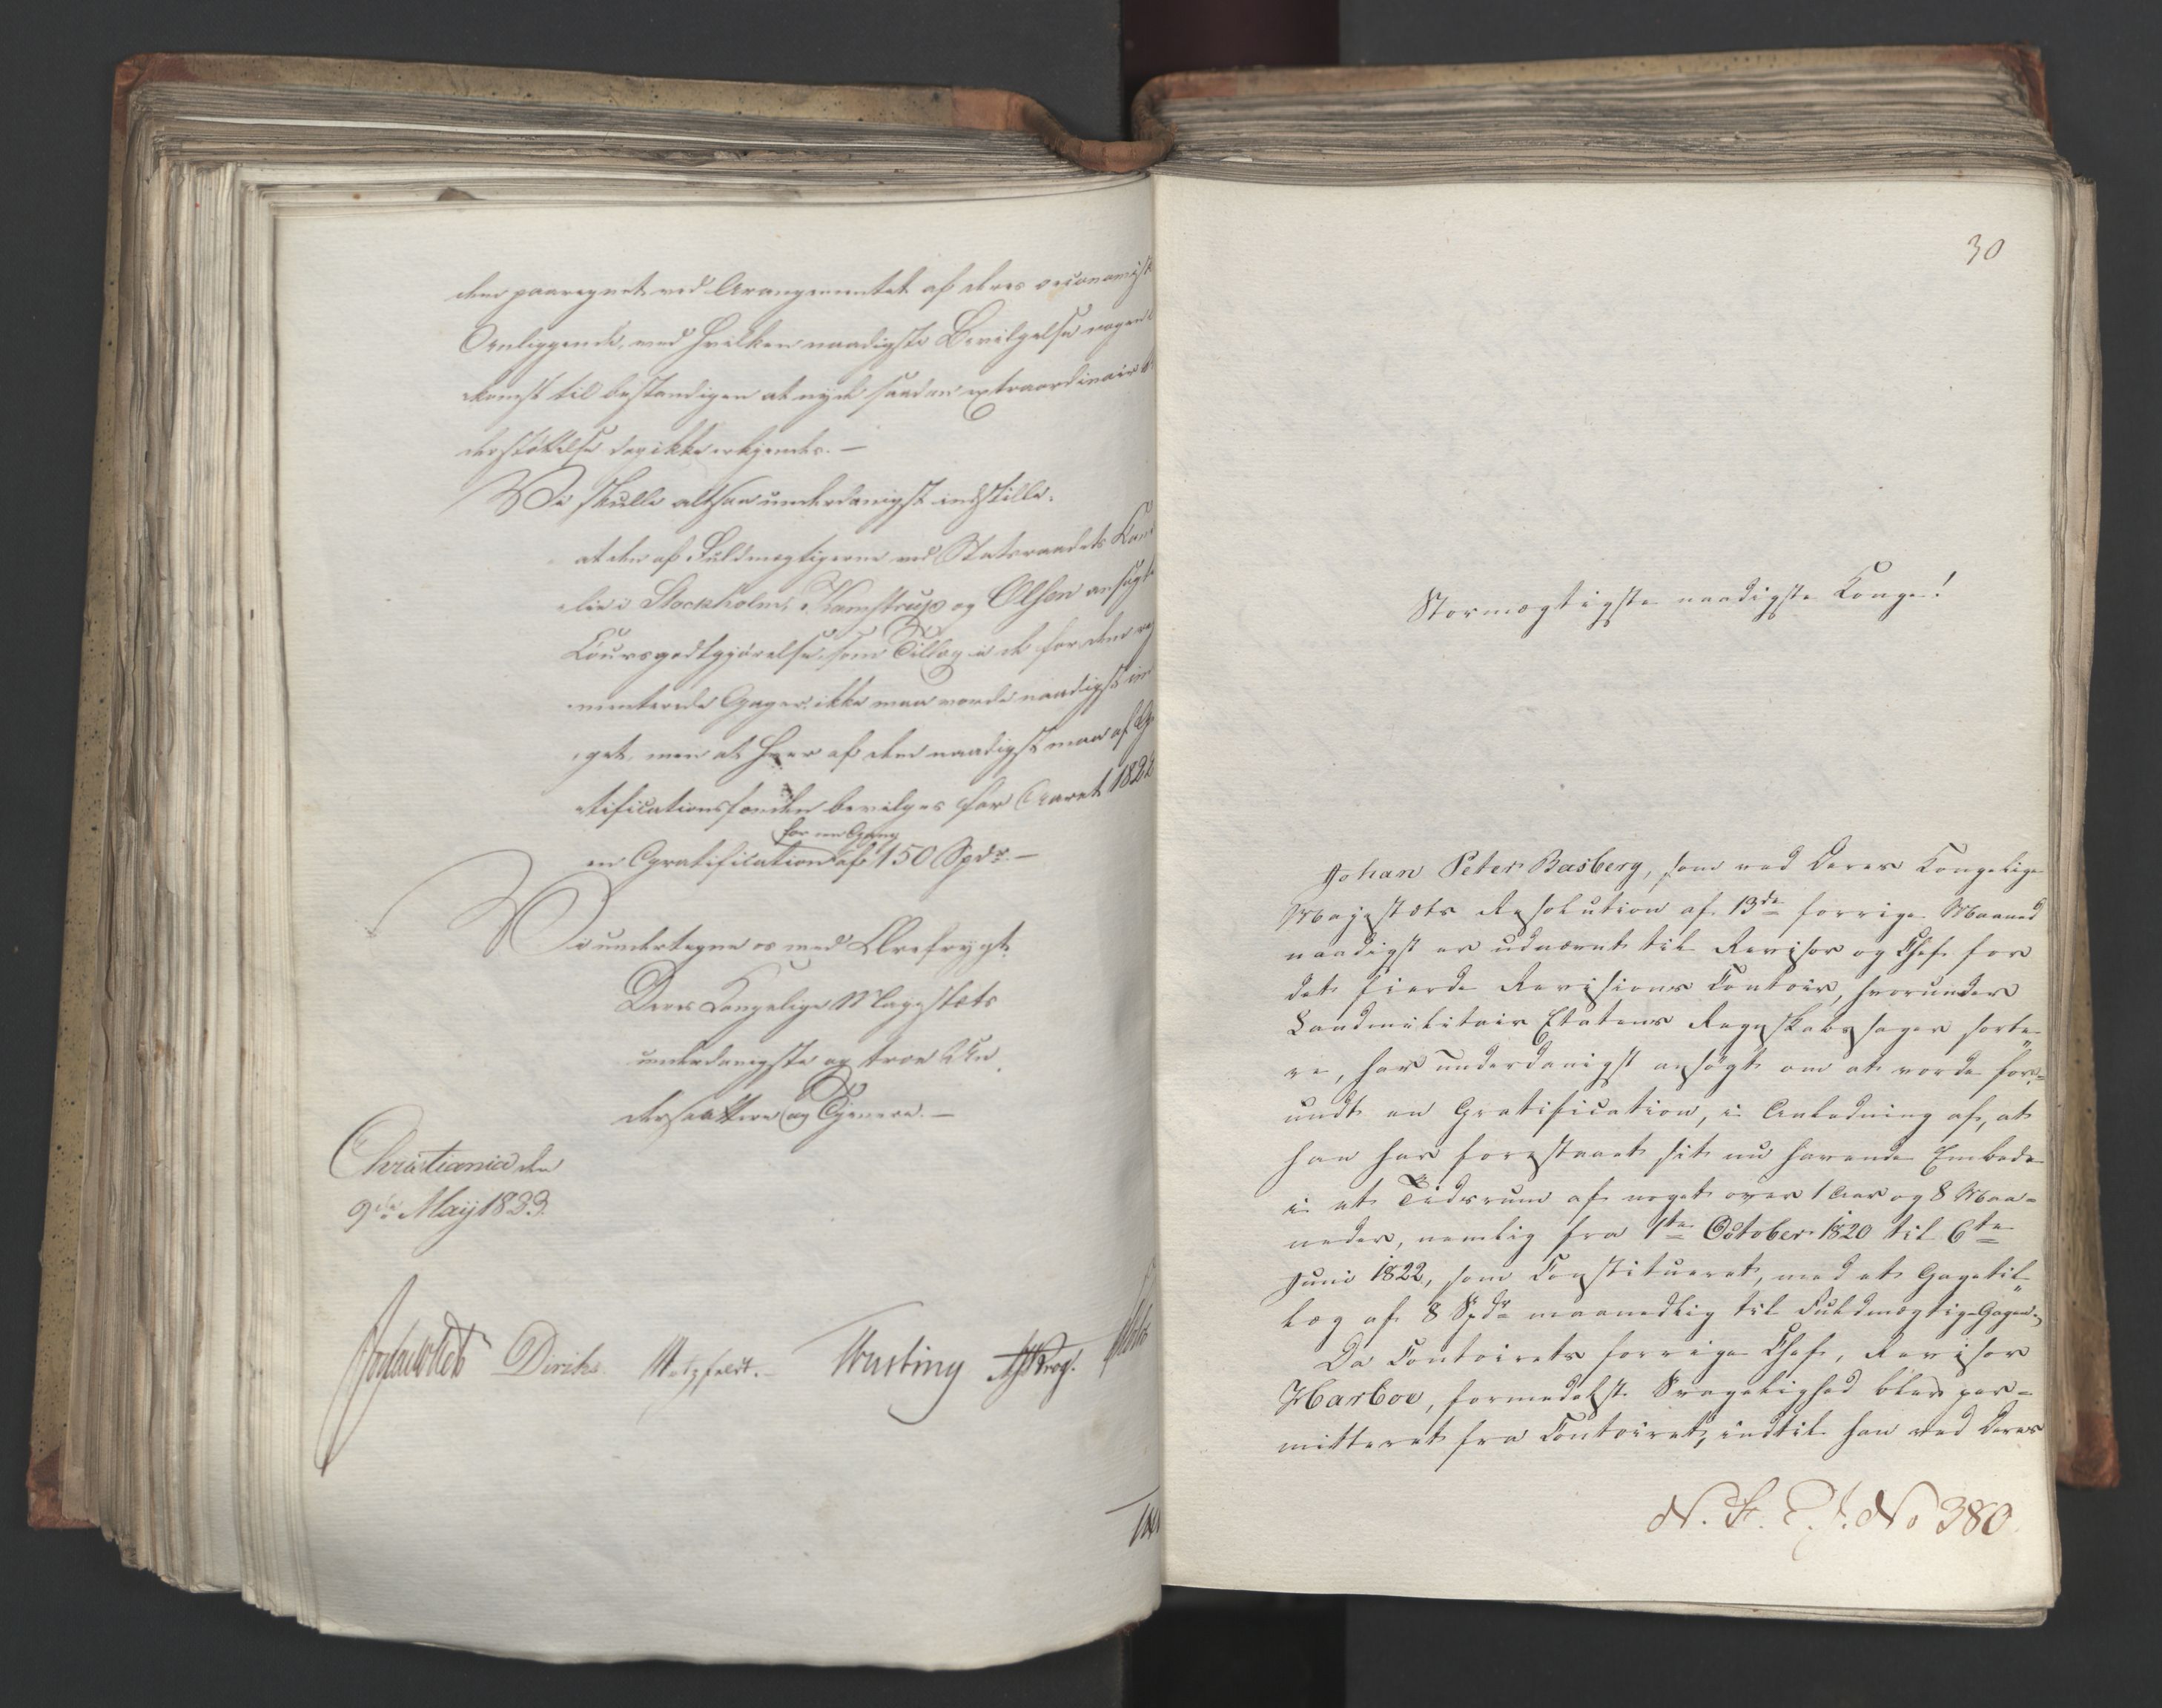 dem paaregnet ved Arangementet af deres oeconomisk
Anliggende, ved hvilken naadigste Bevilgelse nogen
komst til bestandigen at nyde saadan extraordinair
derstøttelse dog ikke erkjendes. —
Vi skulle altsaa underdanigst indstille:
at den af Fuldmægtigerne ved Statsraadets Can
lie i Stockholm, Kamstrup og Olsen ansøgte
Coursgodtgjørelse, som Tillæg i de for dem reg
menterede Gager, ikke maa vorde naadigst ind
get, men at hver af dem naadigst maa af Gr
atificationsfonden bevilges for Aaret 1822
for een Gang
en Gratification af 150 Spdr. —
Vi undertegne os med Ærefrygt
Deres Kongelige Majestæts
underdanigste og troe Un
dersaattere og Tjenere. —
Christiania den
9de May 1823.
Diriks. Motzfeldt. — Krog.
30
Stormægtigste naadigste Konge!
Johan Peter Basberg, som ved Deres Kongelige
Majestæts Resolution af 13de forrige Maaned
naadigst er udnævnt til Revisor og Chef for
det fierde Revisions Contoir, hvorunder
Landmilitair Etatens Regnskabssager sorte-
re, har underdanigst ansøgt om at vorde for-
undt en Gratification, i Anledning af, at
han har forestaaet sit nu havende Embede
i et Tidsrum af noget over 1 Aar og 8 Maa-
neder, nemlig fra 1te October 1820 til 6te
Juni 1822, som Constitueret, med et Gagetil-
læg af 8 Spdr maanedlig til Fuldmægtig-Gagen.
Da Contoirets forrige Chef, Revisor
Harboe, formedelst Svagelighed blev per-
mitteret fra Contoiret, indtil han ved Deres
N. F. P. J. No 380.